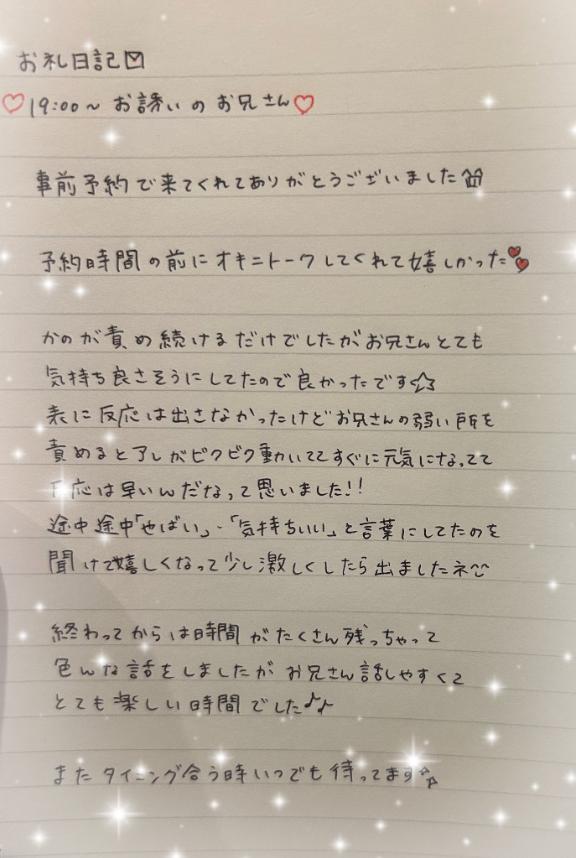 お礼日記✉
♡19:00〜 お誘いのお兄さん♡
事前予約で来てくれてありがとうございました
予約時間の前にオキニトークしてくれて嬉しかった
かのが責め続けるだけでしたがお兄さんとても
気持ち良さそうにしてたので良かったです☆
表に反応は出さなかったけどお兄さんの弱い所を
責めるとアレがビクビク動いててすぐに元気になってて
応は早いんだなって思いました!!
途中途中「やばい」・「気持ちいい」と言葉にしてたのを
聞けて嬉しくなって少し激しくしたら出ましたネ
終わってからは時間がたくさん残っちゃって
色んな話をしましたがお兄さん話しやすくて
とても楽しい時間でした♪♪
またタイミング合う時いつでも待ってます